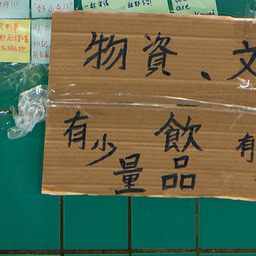 物資、文
有少量飲品 有